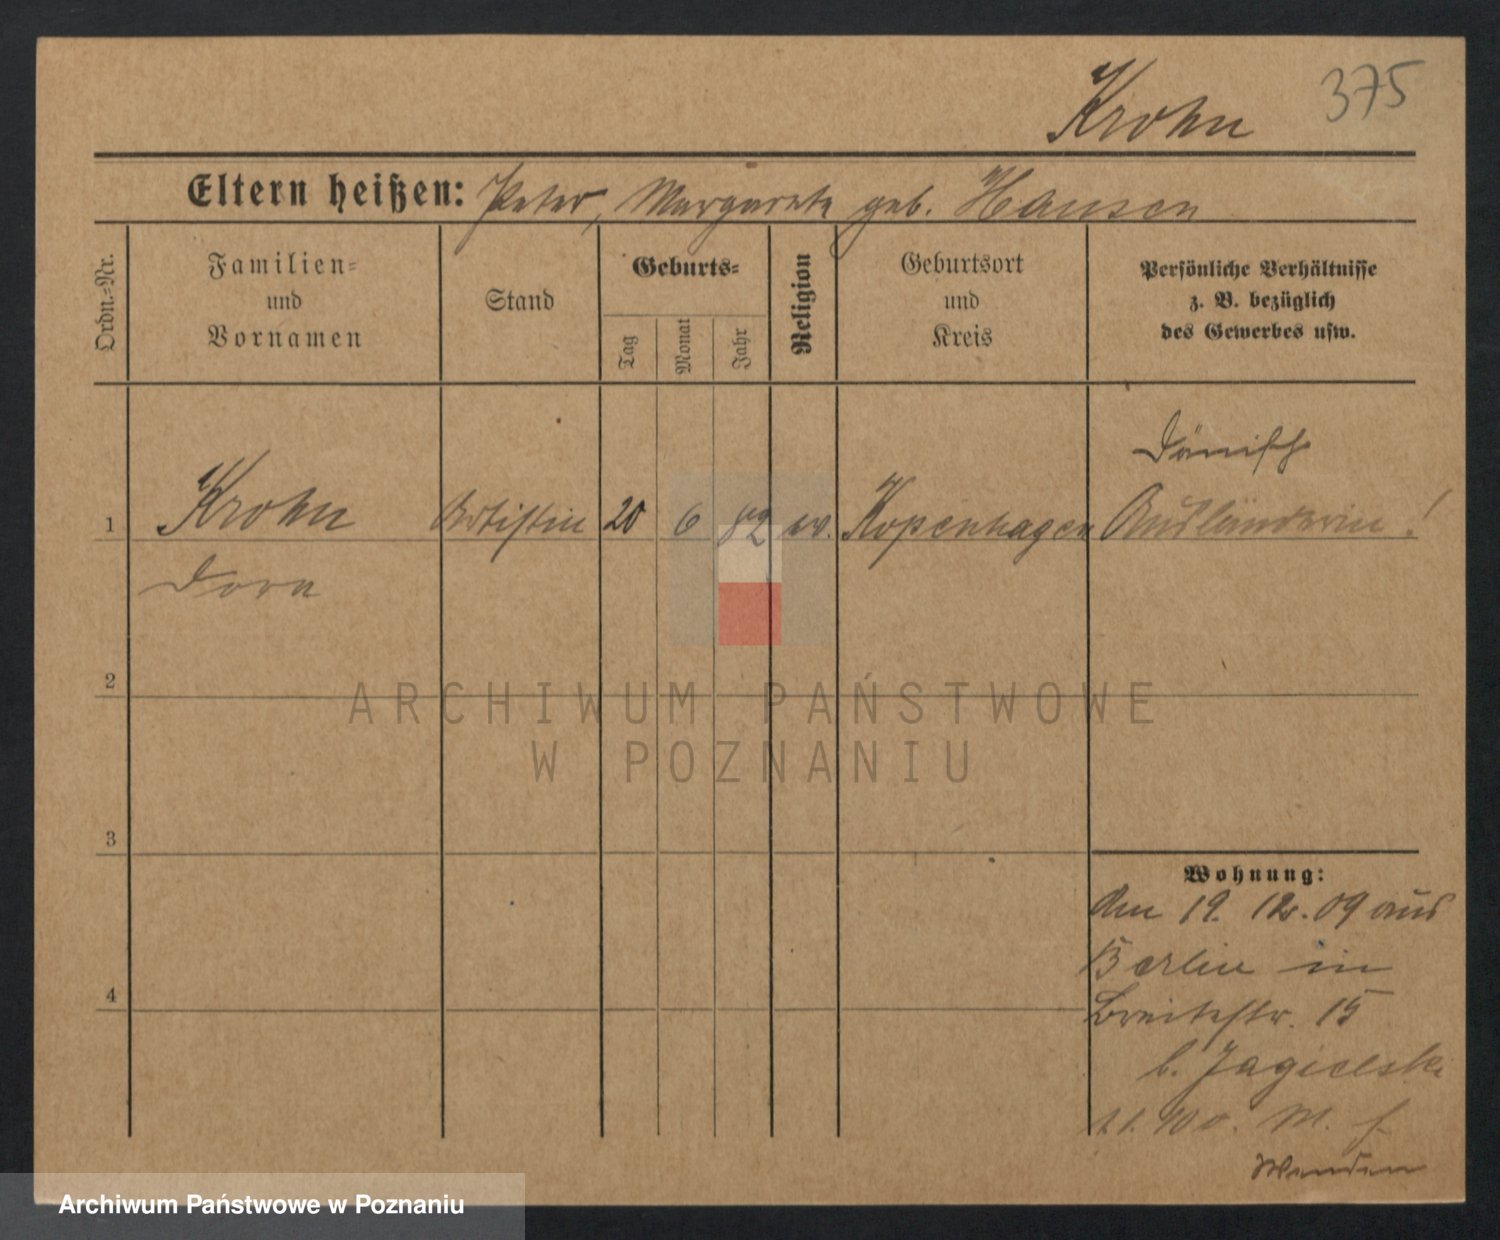 Krohn 375
Eltern heißen: Peter, Margarete geb. Hansen
Ordn.-Nr.
Familien-
und
Vornamen
Stand
Geburts-
Tag
Monat
Jahr
Religion
Geburtsort
und
Kreis
Persönliche Verhältnisse
z. B. bezüglich
des Gewerbes usw.
Dänisch
1 Krohn Artistin 20 6 82 ev. Kopenhagen Ausländerin!
Dora
2
ARCHIWUM PAŃSTWOWE
W POZNANIU
3
Wohnung:
Am 19. 12. 09 aus
Berlin in
4
Breitestr. 15
b. Jagielski
Wenden
Archiwum Państwowe w Poznaniu